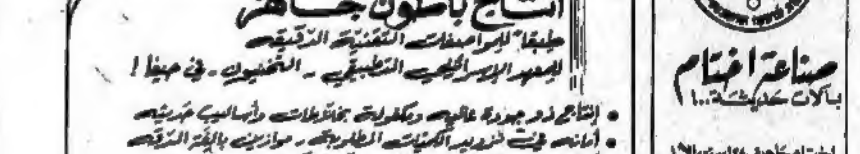 انتاج باطون جاهز
طبقا للمواصفات التقنية الدقيقه
للمعهد الاسرائيلي التطبيقي - التخنيون - في حيفا !
• إنتاج ذو جودة عاليه ومكفولة بخلاطات وأساليب حديثه
• أمانه في تزويد الكميات المطلوبة ، موازين بالغة الدقه
صناعة اختام
بآلات حديثة ..!